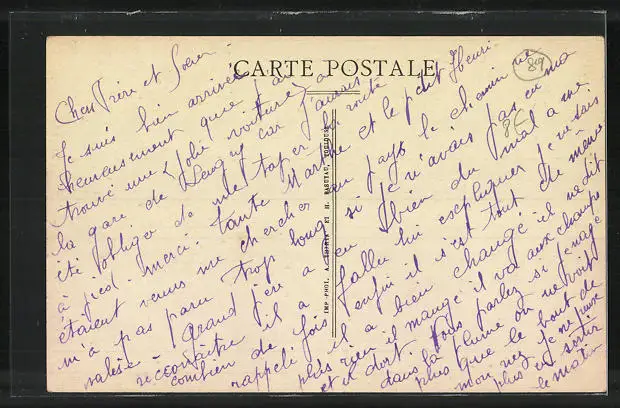 CARTE POSTALE
89
8E
IMP. PHOT. A. THIRIAT ET H. BASUYAU, TOULOUSE
Cher Frère et Soeur
Je suis bien arrivée
heureusement que j'ai
trouvé une jolie voiture à
la gare de car j'aurais
été obligée de me taper la route
à pied. merci. tante Marthe et le petit Henri
étaient venus me chercher au pays le chemin ne
m'a pas paru trop long si je n'avais pas eu ma
valise. Grand père a eu bien du mal a me
reconnaître il a fallu lui expliquer je ne sais
combien de fois enfin il s'est tout de même
rappelé il a bien changé il ne dit
plus rien il mange il va aux champs
et il dort. Vous parlez si je nage
dans la plume on ne voit
plus que le bout de
mon nez je ne peux
plus en sortir
le matin